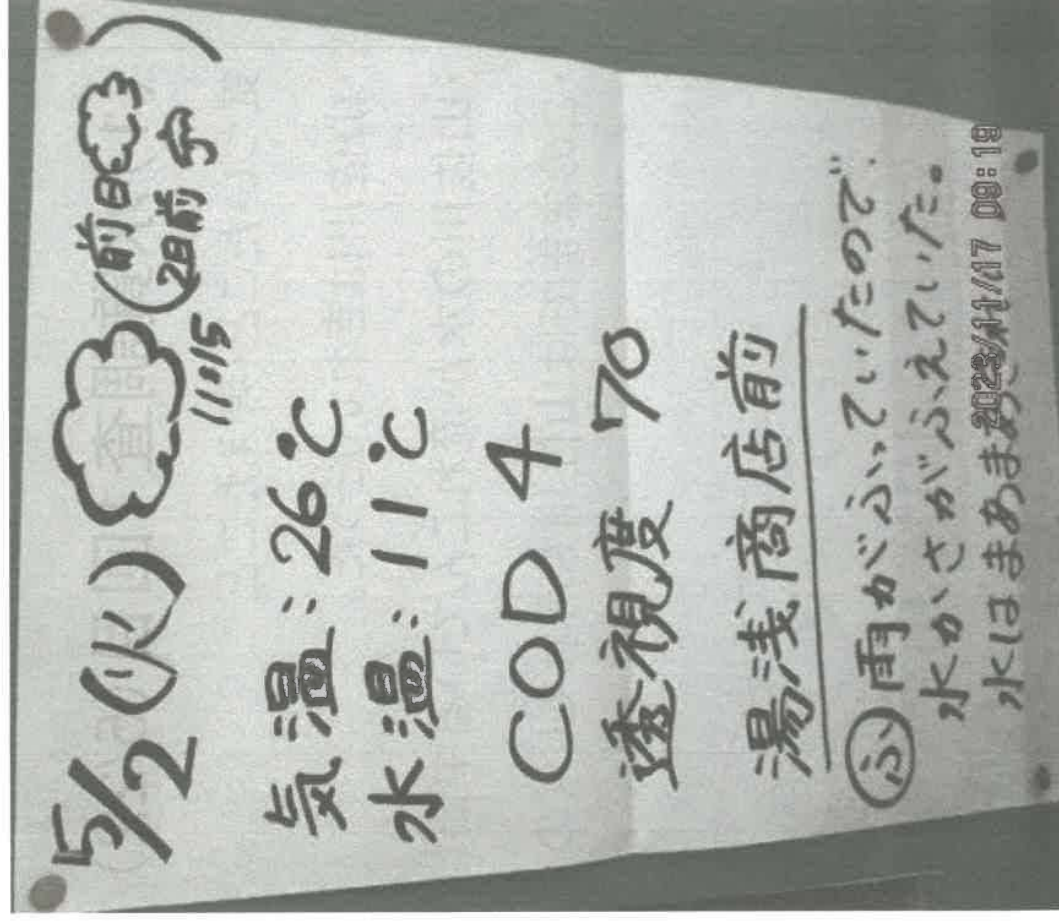 5/2(火) (前日
2日前
11:15
気温:26℃
水温:11℃
COD 4
透視度 70
湯浅商店前
ふ 雨がふっていたので、
水かさがふえていた。
水はまあまあ
2023/11/17 09:19